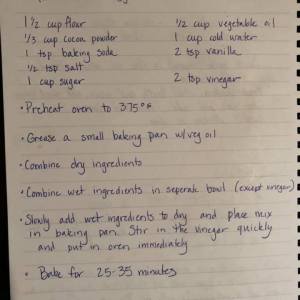 1 1/2 cup flour 1/2 cup vegetable oil
1/3 cup cocoa powder 1 cup cold water
1 tsp baking soda 2 tsp vanilla
1/2 tsp salt
1 cup sugar 2 tsp vinegar
• Preheat oven to 375°F
• Grease a small baking pan w/veg oil
• Combine dry ingredients
• Combine wet ingredients in seperate bowl (except vinegar)
• Slowly add wet ingredients to dry and place mix
in baking pan. Stir in the vinegar quickly
and put in oven immediately
• Bake for 25-35 minutes